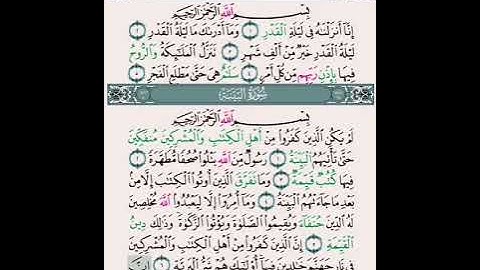 بِسْمِ اللَّهِ الرَّحْمَٰنِ الرَّحِيمِ
إِنَّا أَنزَلْنَٰهُ فِي لَيْلَةِ الْقَدْرِ ١ وَمَا أَدْرَىٰكَ مَا لَيْلَةُ الْقَدْرِ ٢
لَيْلَةُ الْقَدْرِ خَيْرٌ مِّنْ أَلْفِ شَهْرٍ ٣ تَنَزَّلُ الْمَلَٰٓئِكَةُ وَالرُّوحُ
فِيهَا بِإِذْنِ رَبِّهِم مِّن كُلِّ أَمْرٍ ٤ سَلَٰمٌ هِيَ حَتَّىٰ مَطْلَعِ الْفَجْرِ ٥
سُورَةُ الْبَيِّنَةِ
بِسْمِ اللَّهِ الرَّحْمَٰنِ الرَّحِيمِ
لَمْ يَكُنِ الَّذِينَ كَفَرُوا مِنْ أَهْلِ الْكِتَٰبِ وَالْمُشْرِكِينَ مُنفَكِّينَ
حَتَّىٰ تَأْتِيَهُمُ الْبَيِّنَةُ ١ رَسُولٌ مِّنَ اللَّهِ يَتْلُوا صُحُفًا مُّطَهَّرَةً ٢
فِيهَا كُتُبٌ قَيِّمَةٌ ٣ وَمَا تَفَرَّقَ الَّذِينَ أُوتُوا الْكِتَٰبَ إِلَّا مِن
بَعْدِ مَا جَاءَتْهُمُ الْبَيِّنَةُ ٤ وَمَا أُمِرُوا إِلَّا لِيَعْبُدُوا اللَّهَ مُخْلِصِينَ
لَهُ الدِّينَ حُنَفَاءَ وَيُقِيمُوا الصَّلَوٰةَ وَيُؤْتُوا الزَّكَوٰةَ وَذَٰلِكَ دِينُ
الْقَيِّمَةِ ٥ إِنَّ الَّذِينَ كَفَرُوا مِنْ أَهْلِ الْكِتَٰبِ وَالْمُشْرِكِينَ
فِي نَارِ جَهَنَّمَ خَٰلِدِينَ فِيهَا أُولَٰئِكَ هُمْ شَرُّ الْبَرِيَّةِ ٦ إِنَّ